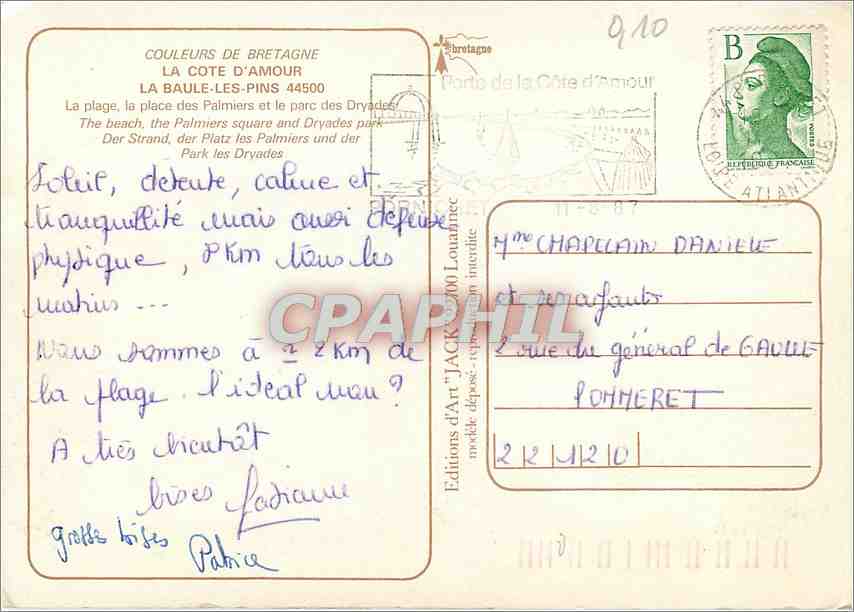 COULEURS DE BRETAGNE
LA COTE D'AMOUR
LA BAULE-LES-PINS 44500
La plage, la place des Palmiers et le parc des Dryades
The beach, the Palmiers square and Dryades park
Der Strand, der Platz les Palmiers und der
Park les Dryades
Soleil, détente, calme et
tranquillité mais aussi dépense
physique, 8 km tous les
matins ...
Nous sommes à 2 km de
la plage. l'idéal non?
A très bientôt
bises Fabienne
grosses bises
Patrice
bretagne
910
Porte de la Côte d'Amour
PORNICHET
11-8-87
B
POSTES
REPUBLIQUE FRANÇAISE
LOIRE ATLANTIQUE
Editions d'Art "JACK" 22700 Louannec
modèle déposé - reproduction interdite
CPAPHIL
Mme CHAPELAIN DANIELE
et ses enfants
2 rue du général de GAULLE
POMMERET
22120